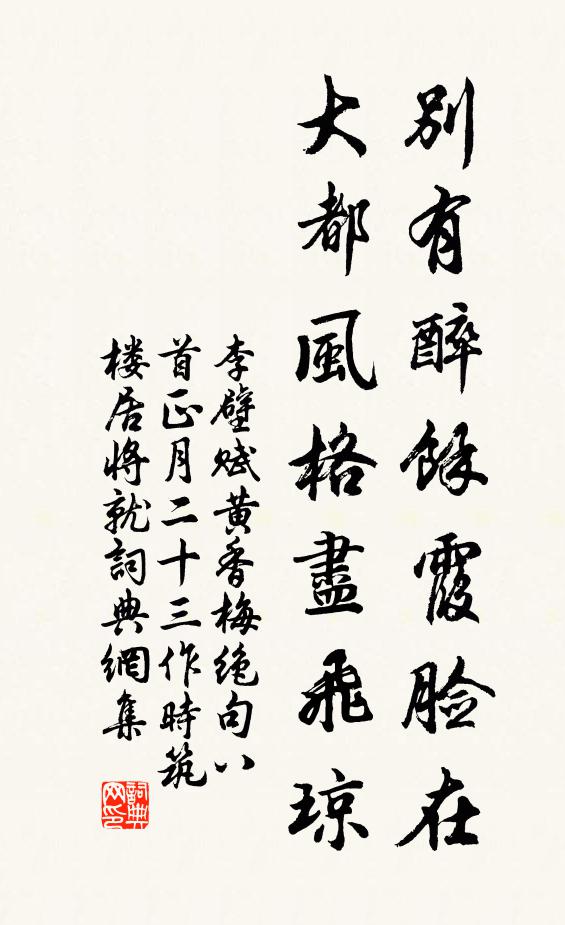 別有醉餘霞脸在
大都風格盡飛琼
李壁赋黄香梅绝句八
首正月二十三作時筑
楼居將就詞典網集
詞典
网印